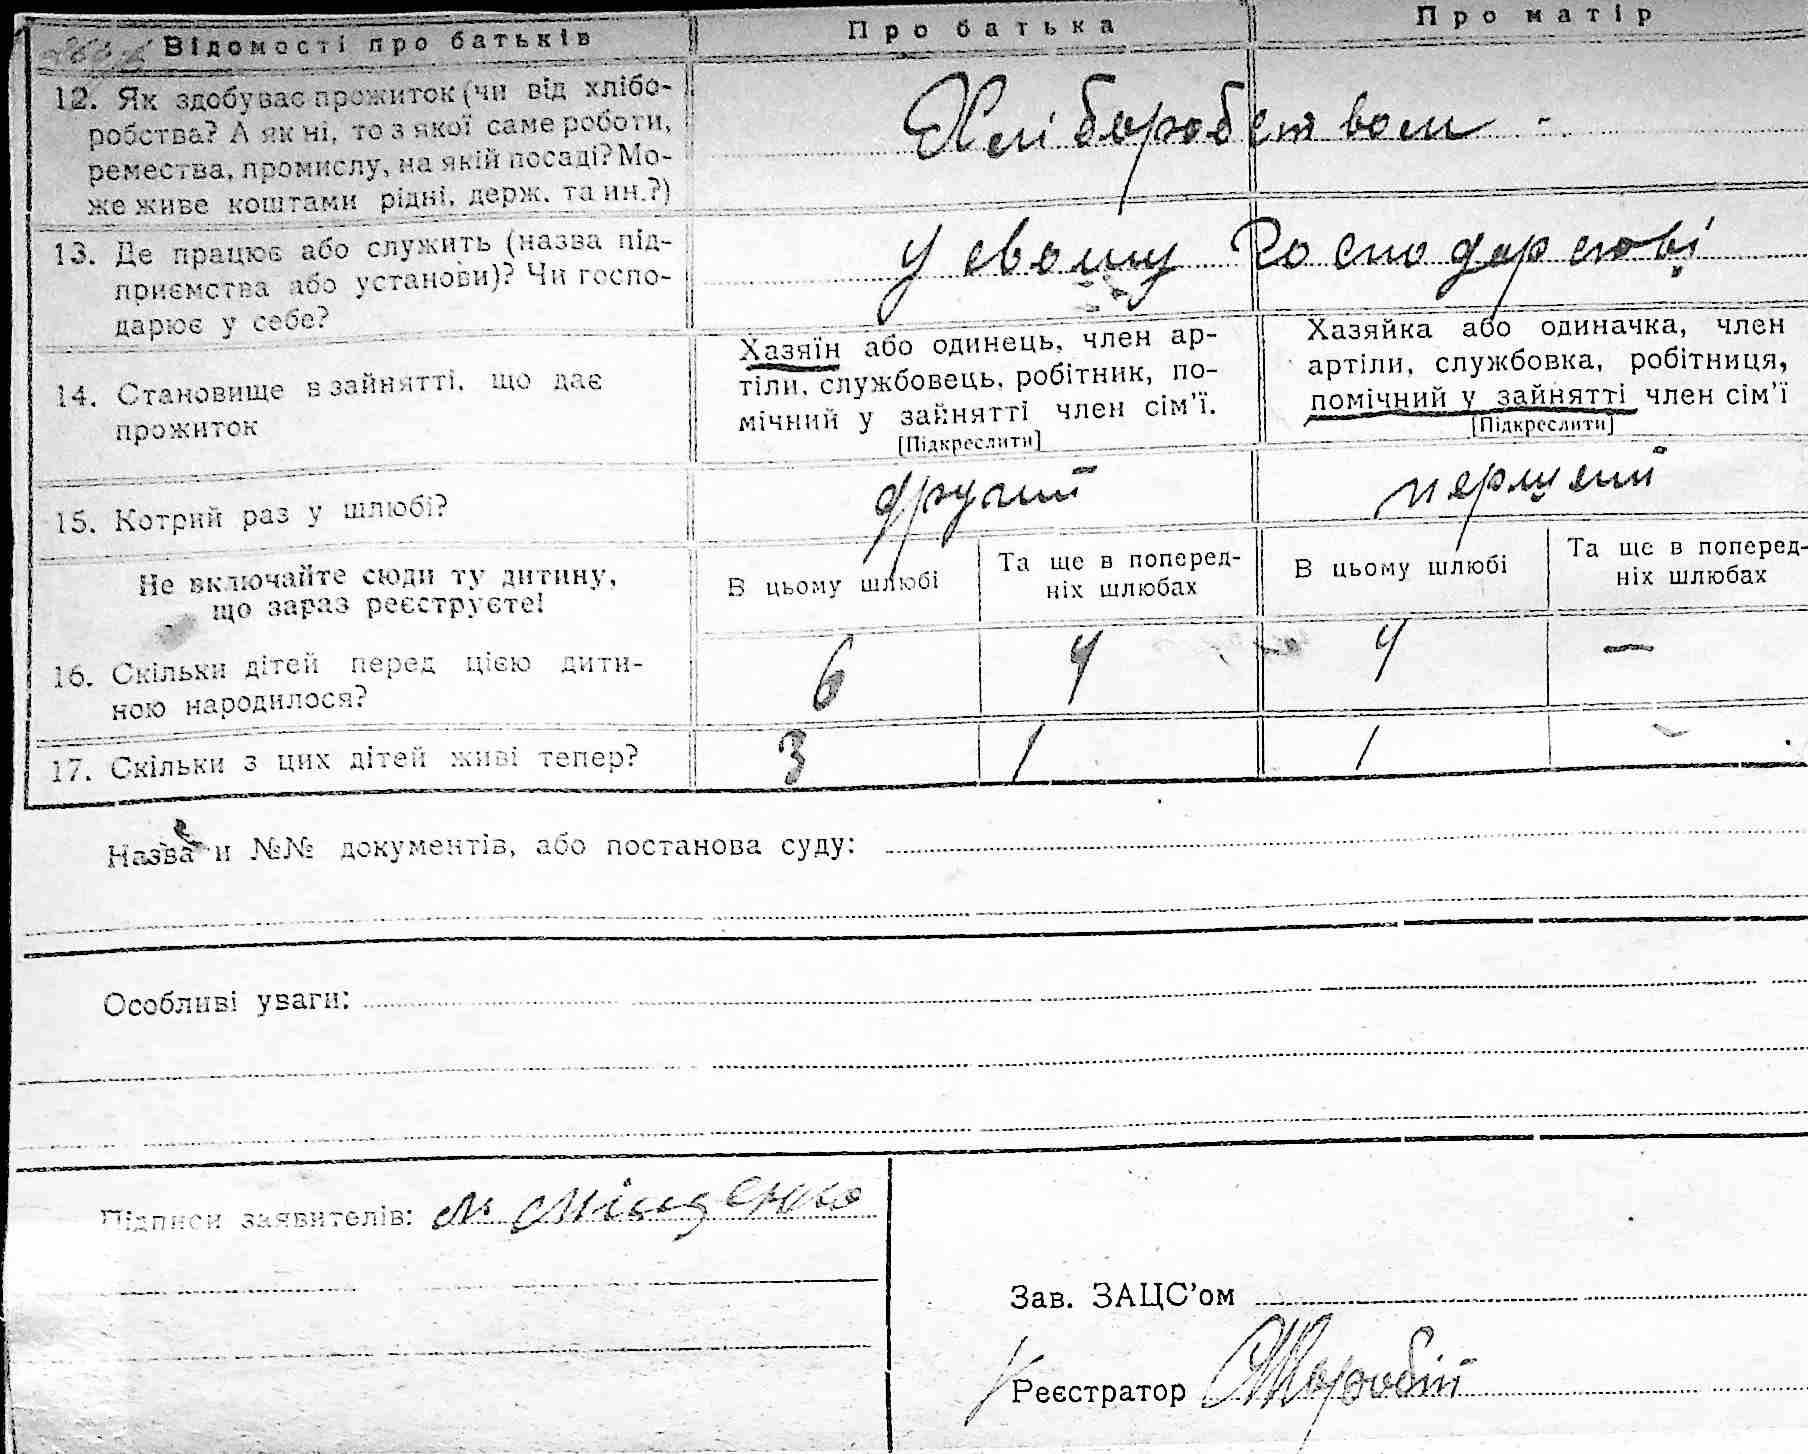 Відомості про батьків
Про батька
Про матір
12. Як здобуває прожиток (чи від хлібо-
робства? А як ні, то з якої саме роботи,
ремества, промислу, на якій посаді? Мо-
же живе коштами рідні, держ. та ин.?)
Хліборобством -
13. Де працює або служить (назва під-
приємства або установи)? Чи госпо-
дарює у себе?
У своєму господарстві
14. Становище в зайнятті, що дає
прожиток
Хазяїн або одинець, член ар-
тіли, службовець, робітник, по-
мічний у зайнятті член сім’ї.
[Підкреслити]
Хазяйка або одиначка, член
артіли, службовка, робітниця,
помічний у зайнятті член сім’ї
[Підкреслити]
15. Котрий раз у шлюбі?
другий
перший
Не включайте сюди ту дитину,
що зараз реєструєте!
В цьому шлюбі
Та ще в поперед-
ніх шлюбах
В цьому шлюбі
Та ще в поперед-
ніх шлюбах
16. Скільки дітей перед цією дити-
ною народилося?
6
4
4
—
17. Скільки з цих дітей живі тепер?
3
1
1
-
Назва и №№ документів, або постанова суду:
Особливі уваги:
Підписи заявителів: М Міщенко
Зав. ЗАЦС’ом
Реєстратор